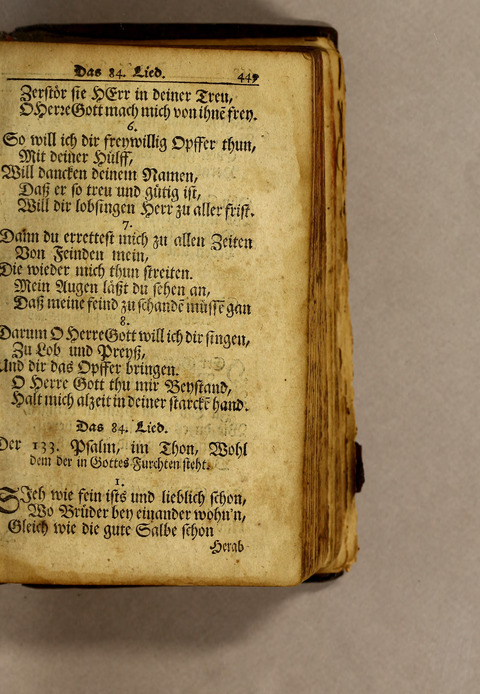 Das 84. Lied. 449
Zerstör sie HErr in deiner Treu,
O HerreGott mach mich von ihnē frey.
6.
So will ich dir freywillig Opffer thun,
Mit deiner Hülff,
Will dancken deinem Namen,
Daß er so treu und gütig ist,
Will dir lobsingen Herr zu aller frist.
7.
Dann du errettest mich zu allen Zeiten
Von Feinden mein,
Die wieder mich thun streiten.
Mein Augen läßt du sehen an,
Daß meine feind zu schandē müssē gan
8.
Darum O HerreGott will ich dir singen,
Zu Lob und Preyß,
Und dir das Opffer bringen.
O Herre Gott thu mir Beystand,
Halt mich alzeit in deiner starckē hand.
Das 84. Lied.
Der 133. Psalm, im Thon, Wohl
dem der in Gottes Furchten steht.
1.
SJeh wie fein ists und lieblich schon,
Wo Brüder bey einander wohn'n,
Gleich wie die gute Salbe schon
Herab